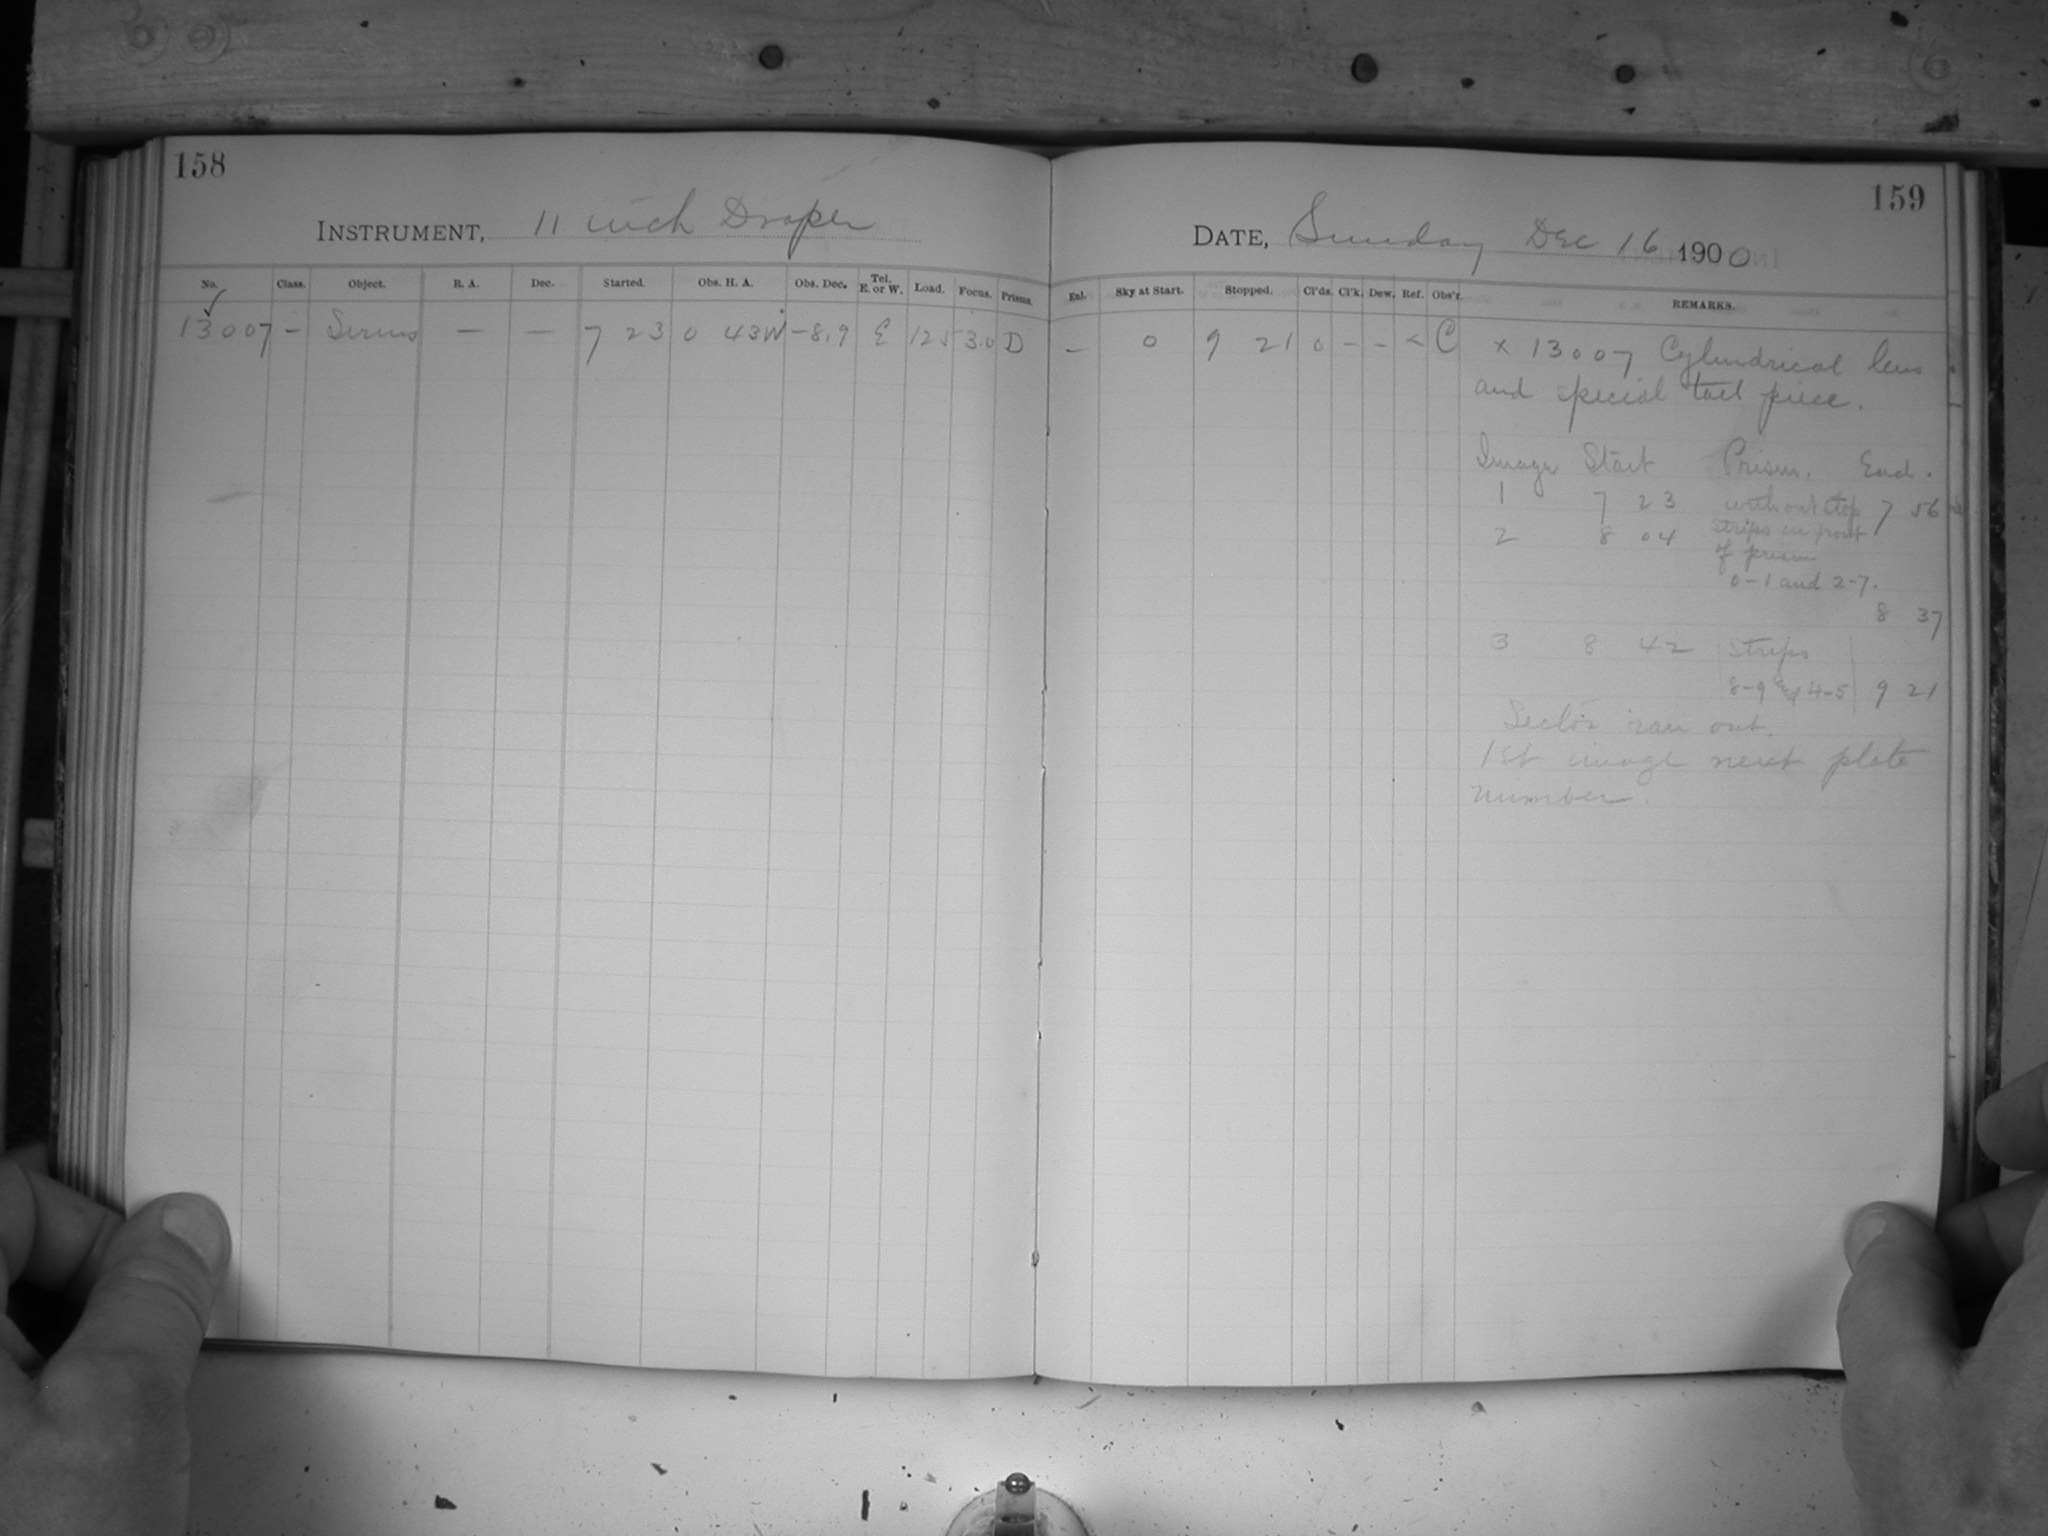 158
INSTRUMENT, 11 inch Draper
No. Class. Object. R. A. Dec. Started. Obs. H. A. Obs. Dec. Tel. E. or W. Load. Focus. Prisms.
13007 - Sirius — — 7 23 0 43W -8.9 E 125 3.0 D
159
DATE, Sunday Dec 16 1900
Ext. Sky at Start. Stopped. Cl'ds. Cl'k. Dew. Ref. Obs'r. REMARKS.
— 0 9 21 0 - - < C x 13007 Cylindrical lens
and special tail piece.
Image Start Prism. End.
1 7 23 without stop 7 56
2 8 04 Strips in front
of prism
0-1 and 2-7.
8 37
3 8 42 Strips
8-9 4-5 9 21
Sector ran out.
1st image next plate
number.